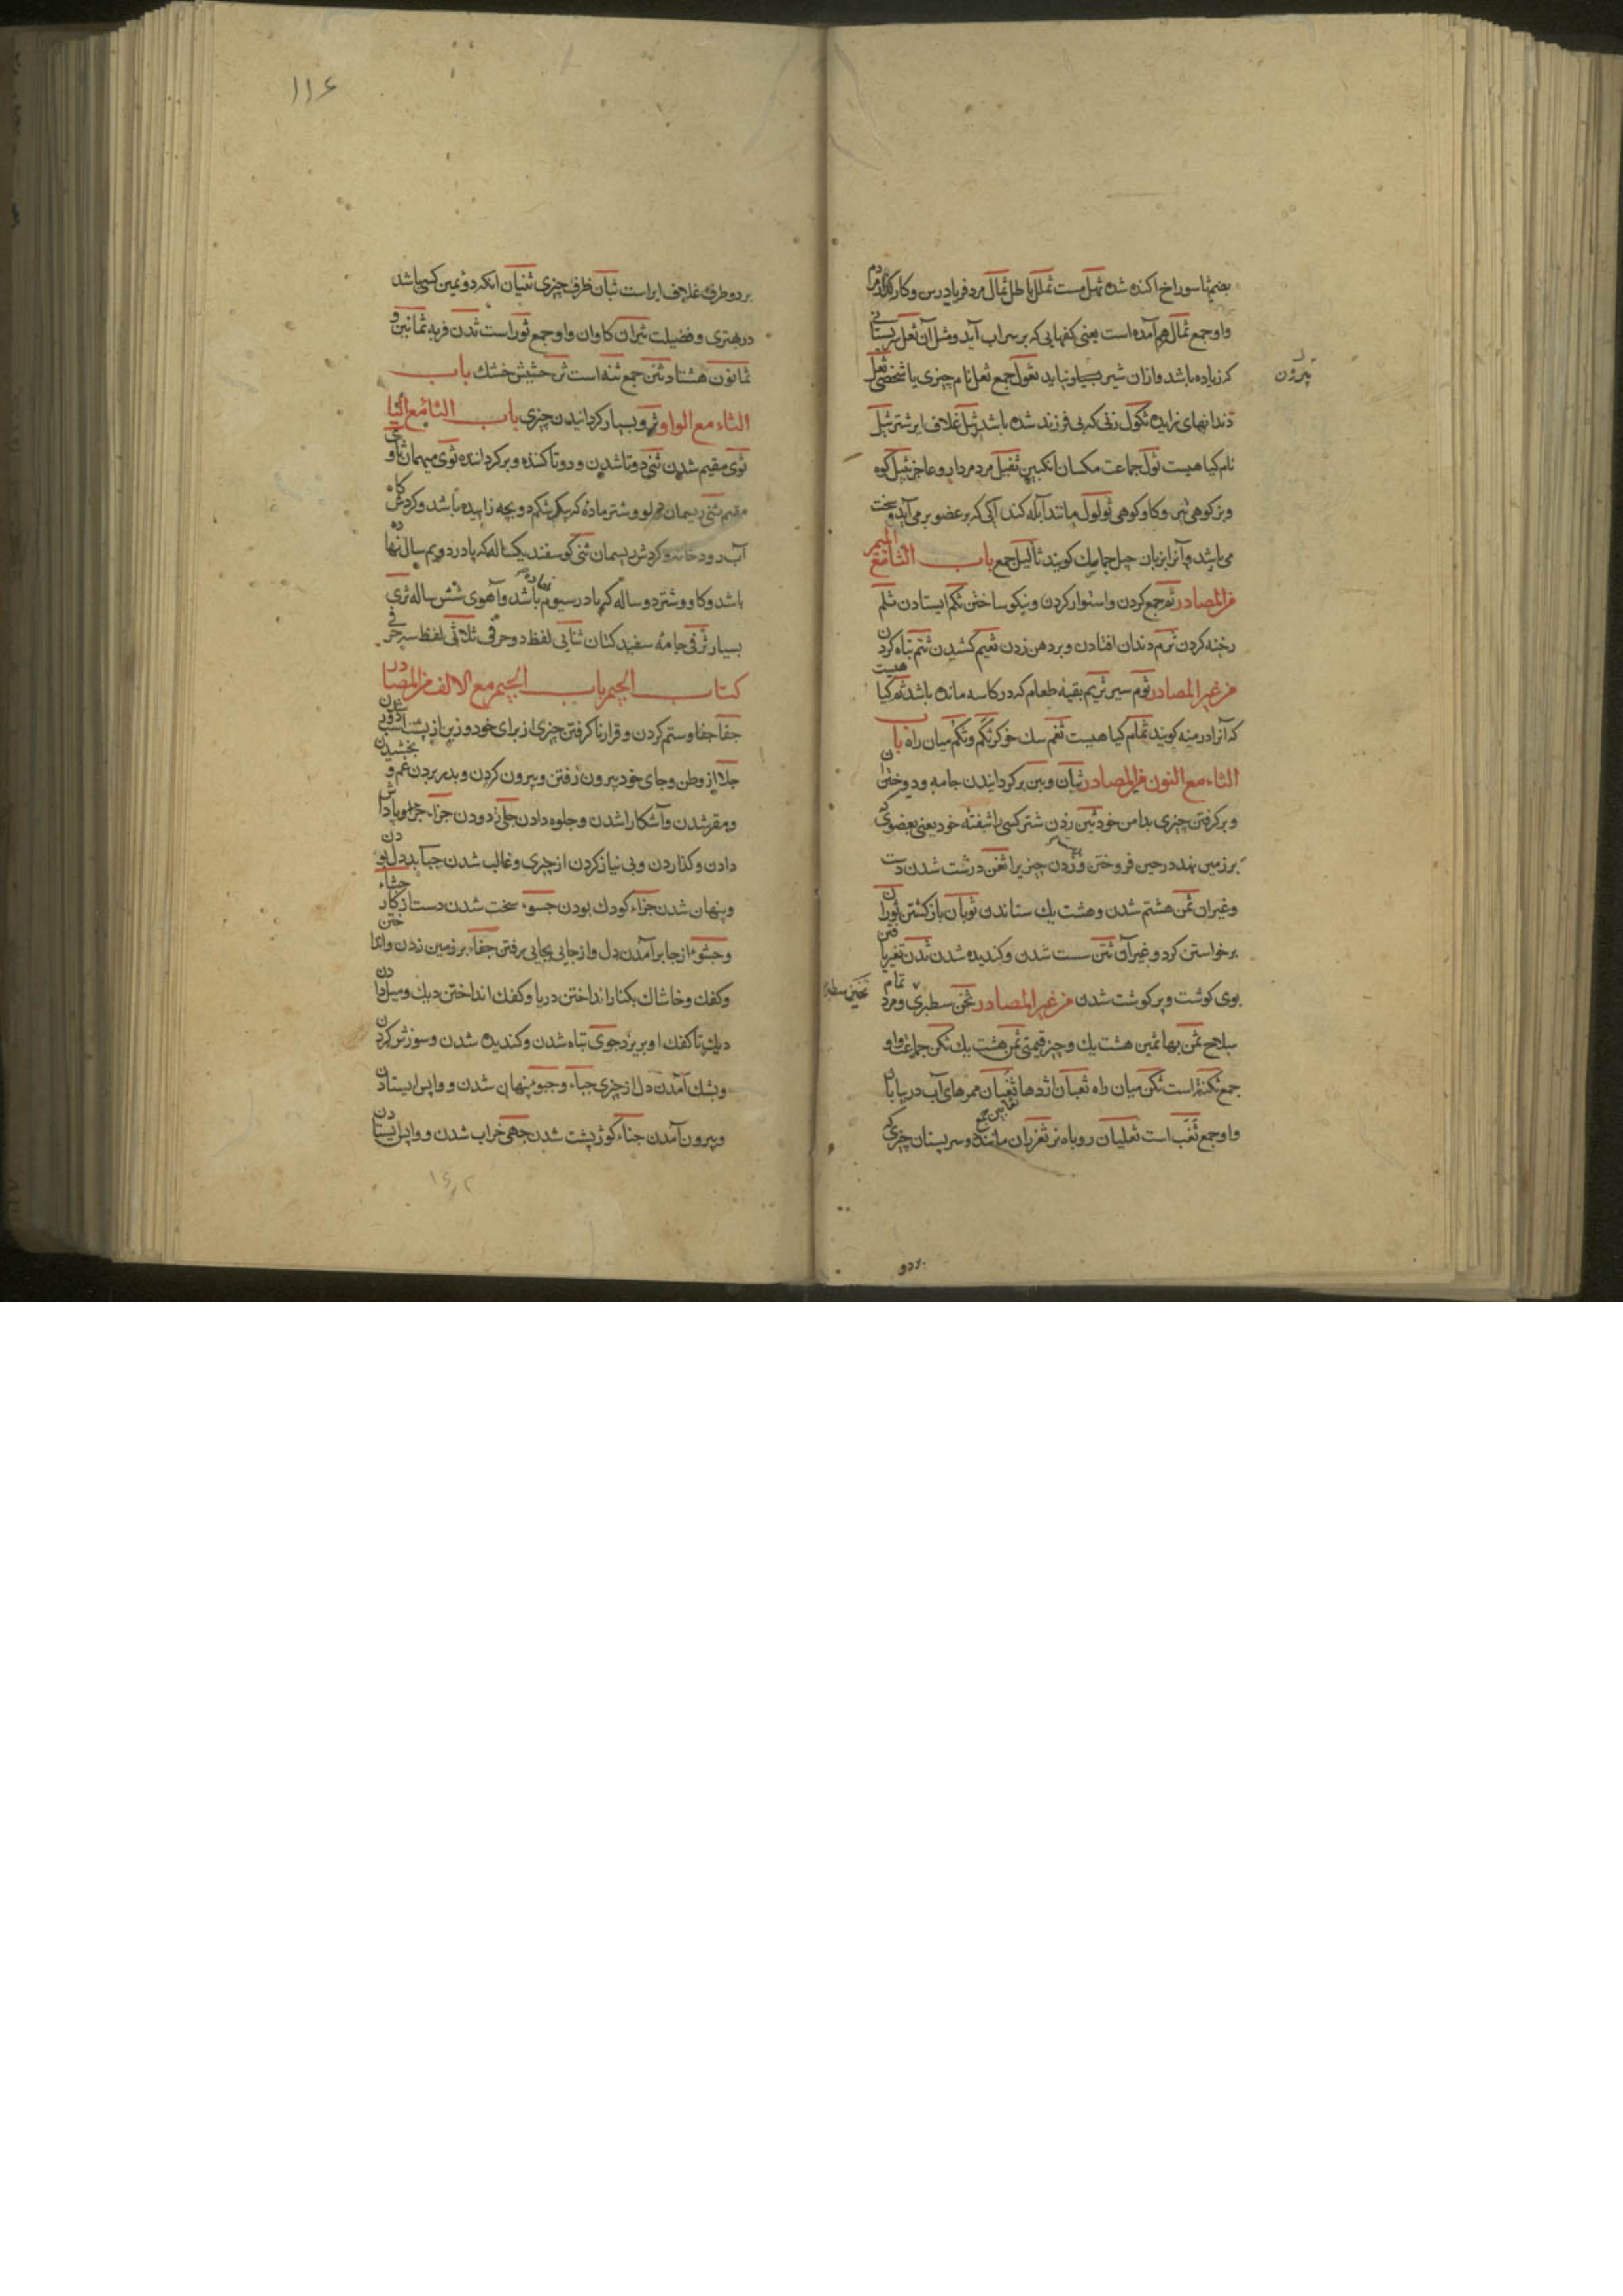 بضم ثا سوراخ اکنده شده ثمل مست ثملل باطل ثمال مرد فریادرس و کارگذار مردم
واو جمع ثمال هم آمده است یعنی کفهایی که بر سر آب آید و مثل آن ثعل سرپستانی
که زیاده باشد و ازان شیر بسیار نیاید ثعول جمع ثعل نام چیزی یا شخصی ثعل
دندانهای زایده ثکول زنی که بی فرزند شده باشد ثیل غلاف ایر شتر ثیل
نام کیاهیست ثول جماعت مکسان انکبین ثقیل مرد و عاجز ثیتل کوه
وبز کوهی نر و کاو کوهی ثولول مانند آبله کندا کی که بر عضو بر می آید و سخت
می باشد و آنرا بزبان کویند ثآلیل جمع باب الثا مع المیم
من المصادر ثم جمع کردن و استوار کردن و نیکو ساختن ثکم ایستادن ثلم
رخنه کردن ثرم دندان افتادن و بر دهن زدن ثعم کشیدن ثتم تباه کردن
من غیر المصادر ثوم سیر ثریم بقیهٔ طعام که در کاسه مانده باشد ثم کیاهیست
که آنرا در کویند ثمام کیاهیست ثغم سک خو کر ثکم و ثکم میان راه باب
الثاء مع النون من المصادر ثبان و ثبن بر کردانیدن جامه و دوختن آن
و بر کرفتن چیزی بدامن خود ثبن زدن شتر کسی را بثفنهٔ خود یعنی بعضوی که
بر زمین نهد در حین فرو ختن و زدن چیزیرا ثفن درشت شدن دست
و غیر ان ثمن هشتم شدن و هشت یک ستاندن ثوبان باز کشتن ثوران
برخواستن کرد و غیر آن ثتن سست شدن و کندیده شدن ثدن تغیر یافتن
بوی کوشت و پر کوشت شدن من غیر المصادر ثخن سطبری و مرد تمام
سلاح ثمن بها ثمین هشت یک و چیز قیمتی ثمن هشت یک ثکن جماعتها و او
جمع ثکنة است ثکن میان راه ثعبان اژدها ثغبان ممرهای آب در بیابان
واو جمع ثغب است ثعلبان روباه نر ثغربان مانند دو سر پستان چیزی که
ثخین سطبر
بر دو
۱۱۶
بر دو طرف غلاف ایر است ثبان ظرف چیزی ثنیان انکه دوئمین کسی باشد
در بهتری و فضیلت ثیران کاوان و او جمع ثور است ثدن فربه ثمانین و
ثمانون هشتاد ثنن جمع ثنه است ثن حشیش خشک باب
الثاء مع الواو ثرو بسیار کردانیدن چیزی باب الثا مع الیا
ثوی مقیم شدن ثنی دوتا شدن و دوتا کننده و بر کرداننده ثوی میهمان ثاوی
مقیم ثنی ریسمان دولو و شتر ماده که بیک شکم دو بچه زاییده باشد و کردش کاه
آب رودخانه و کردش ریسمان ثنی کوسفند یکساله که پا در دویم سال نهاده
باشد و کاو و شتر دو ساله که پا در سیوم نهاده باشد و آهوی شش ساله ثری
بسیار ثرقی جامهٔ سفید کتان ثنایی لفظ دو حرفی ثلاثی لفظ سه حرفی
کتاب الجیم باب الجیم مع الالف من المصادر
جفا جفا و ستم کردن و قرار ناکرفتن چیزی از برای خود و زین از پشت اسب دور شدن
جلا از وطن و جای خود بیرون رفتن و بیرون کردن و بدر بردن غم و بخشیدن
و مقر شدن و آشکارا شدن و جلوه دادن جلی زدودن جزاء جزا و پاداش
دادن و کذاردن و بی نیاز کردن از چیزی و غالب شدن جبا بد دل بودن
و پنهان شدن جزاء کودک بودن جسوء سخت شدن دست از کار جشاء
و جشوء از جا بر آمدن دل و از جایی بجایی رفتن جفاء بر زمین زدن و انداختن
و کفک و خاشاک بکنار انداختن دریا و کفک انداختن دیک و میل دادن
دیک تا کفک او بریزد جوی تباه شدن و کندیده شدن و سوزش کردن
و بتنک آمدن دل از چیزی جباء و جبو پنهان شدن و واپس ایستادن
و بیرون آمدن جناء کوژ پشت شدن جهی خراب شدن و واپس ایستادن